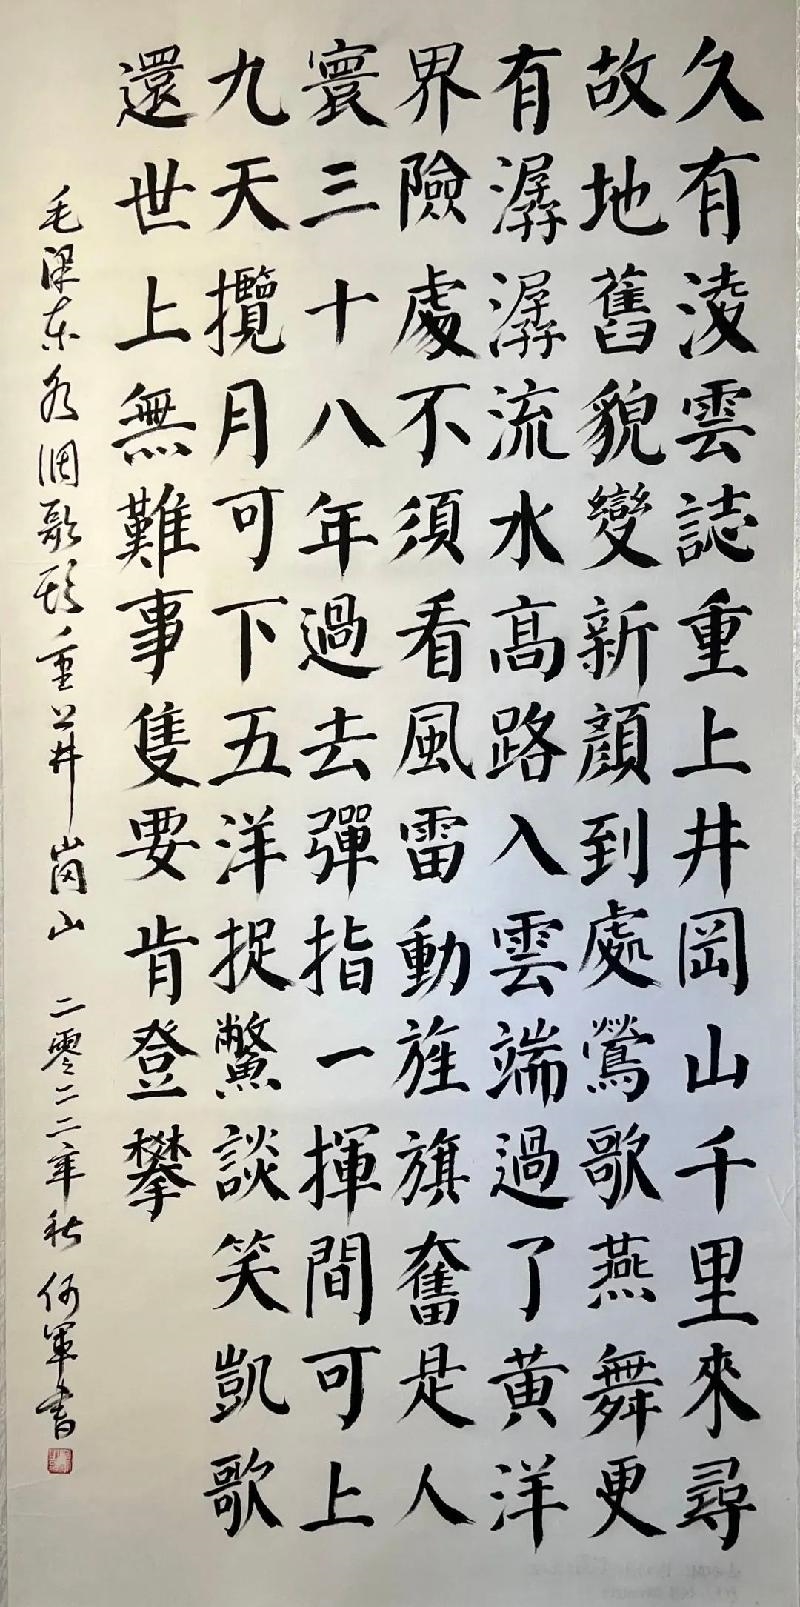 久有淩雲誌重上井岡山千里來尋
故地舊貌變新顏到處鶯歌燕舞更
有潺潺流水高路入雲端過了黃洋
界險處不須看風雷動旌旗奮是人
寰三十八年過去彈指一揮間可上
九天攬月可下五洋捉鱉談笑凱歌
還世上無難事隻要肯登攀
毛泽东水调歌头重上井崗山 二零二二年秋 何軍書